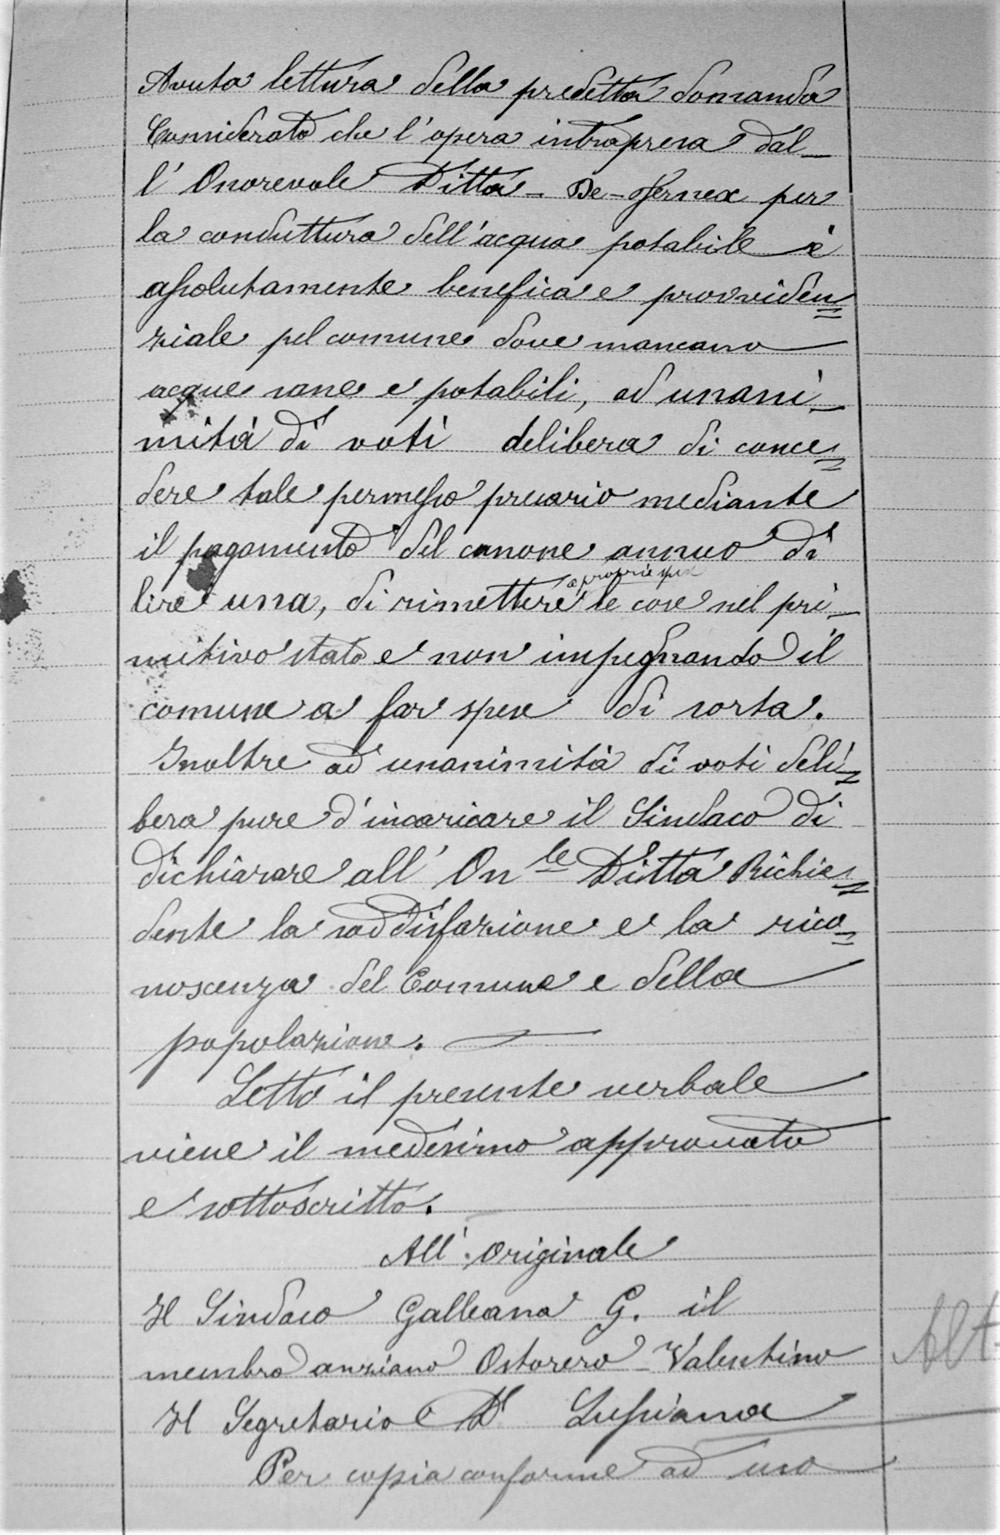 Avuta lettura della predetta domanda
Considerato che l'opera intrapresa dal-
l'Onorevole Ditta - De-Fernex per
la conduttura dell'acqua potabile è
assolutamente benefica e provviden=
ziale pel comune dove mancano
acque sane e potabili, ad unani-
mità di voti delibera di conce=
dere tale permesso precario mediante
il pagamento del canone annuo di
a proprie spese
lire una, di rimettere le cose nel pri-
mitivo stato e non impegnando il
comune a far spese di sorta.
Inoltre ad unanimità di voti deli=
bera pure d'incaricare il Sindaco di
dichiarare all'On.le Ditta Richie=
dente la soddisfazione e la rico=
noscenza del Comune e della
popolazione. —
Letto il presente verbale
viene il medesimo approvato
e sottoscritto.
All'originale
Il Sindaco Galleana G. il
membro anziano Ostorero Valentino
Il Segretario Dl Lussiana
Per copia conforme ad uso